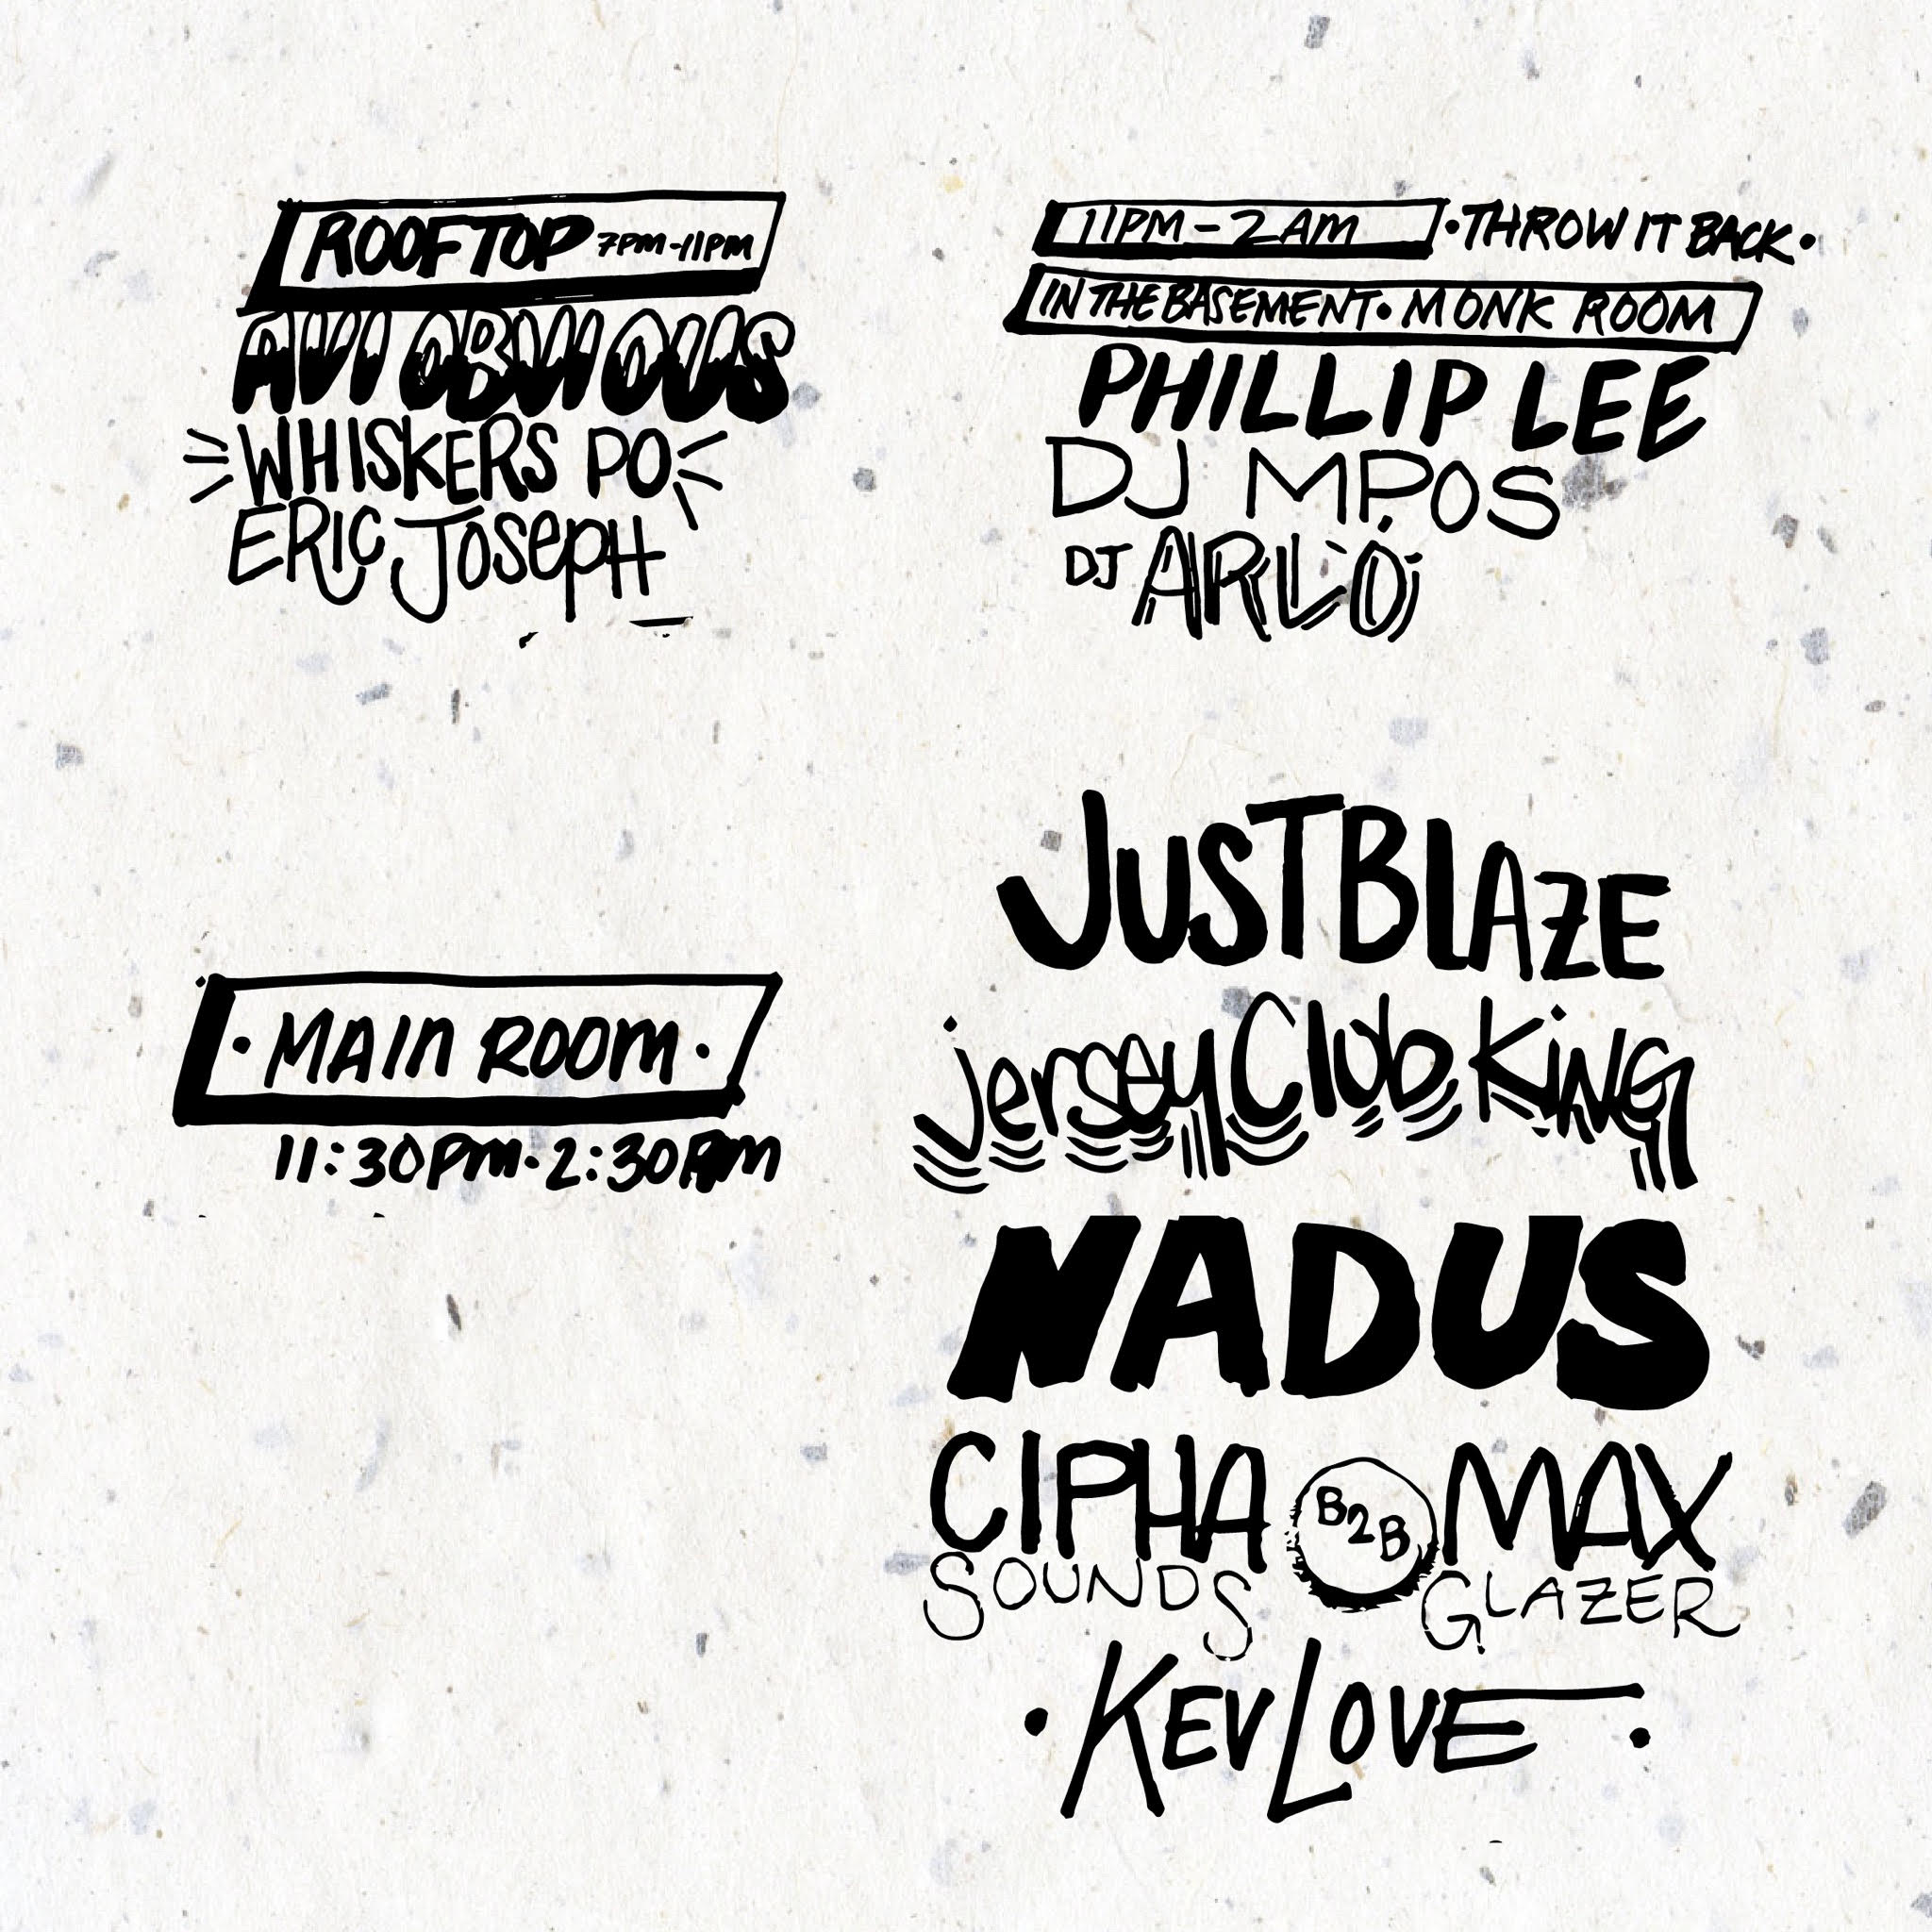 ROOFTOP 7PM-11PM
AVI OBVIOUS
WHISKERS PO
ERIC JOSEPH
11PM-2AM •THROW IT BACK•
IN THE BASEMENT• MONK ROOM
PHILLIP LEE
DJ MPOS
DJ ARLO
•MAIN ROOM•
11:30PM-2:30AM
JUST BLAZE
jersey Club KING
NADUS
CIPHA B2B MAX
SOUNDS GLAZER
•KEVLOVE•